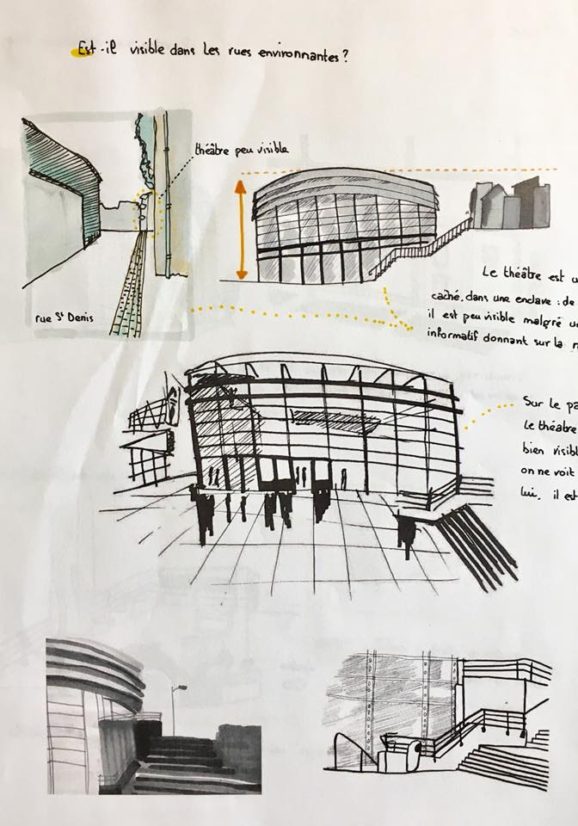 Est-il visible dans les rues environnantes ?
théâtre peu visible
rue St Denis
Le théâtre est u
caché, dans une enclave : de
il est peu visible malgré u
informatif donnant sur la
Sur le pa
le théâtre
bien visib
on ne voit
lui. il est